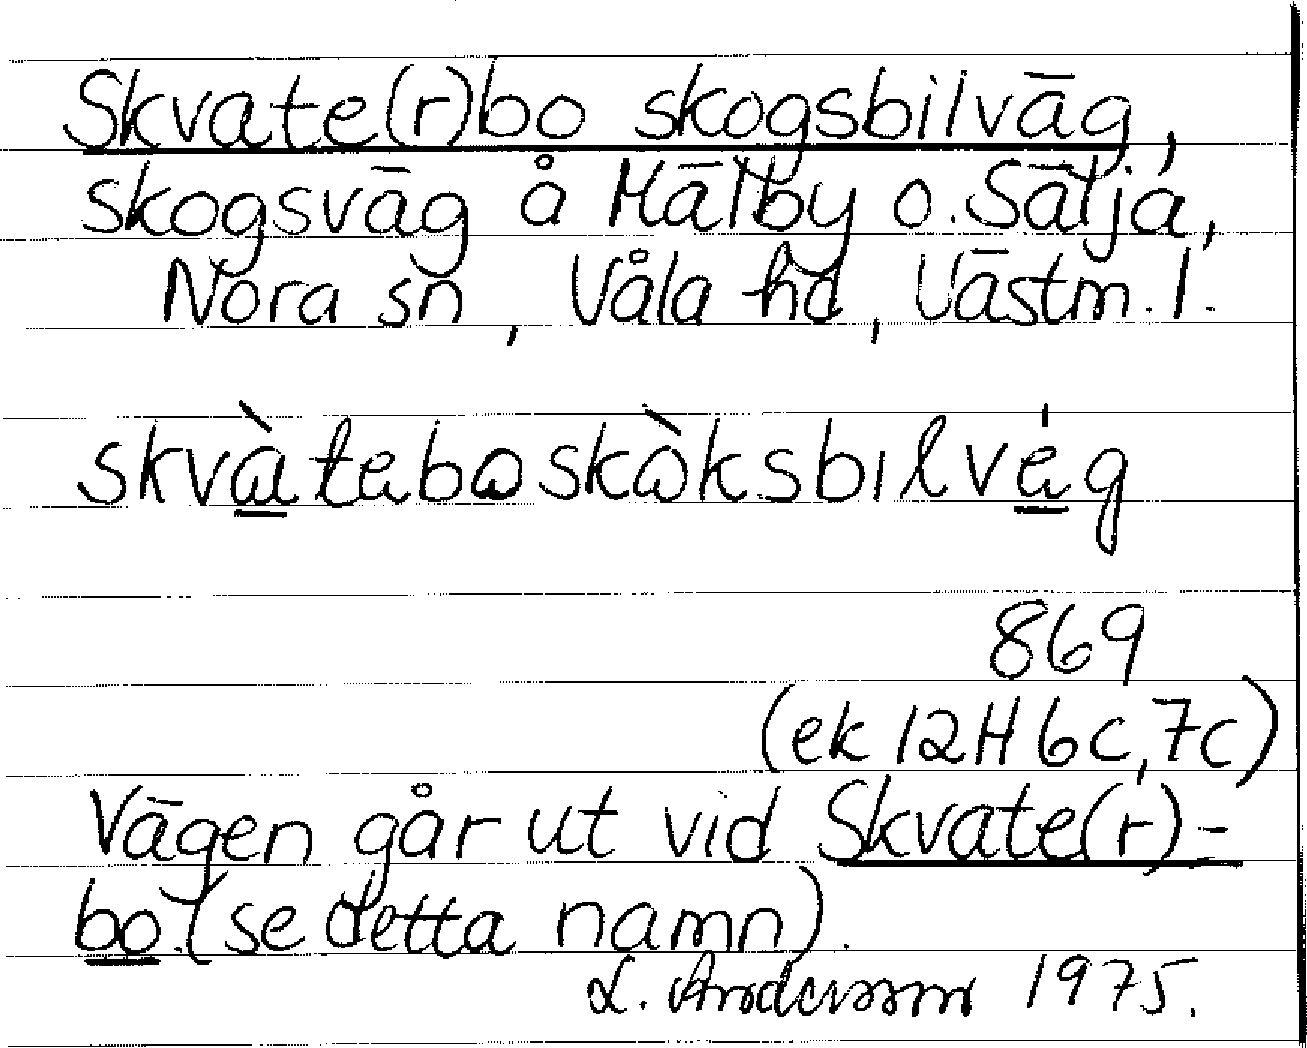 Skvate(r)bo skogsbilväg,
skogsväg å Hälby o. Sälja,
Nora sn, Våla hd, Västm. l.
skvàtebɷskɷ̀ksbɪlvég
869
(ek 12H 6c,7c)
Vägen går ut vid Skvate(r)-
bo (se detta namn).
L. Andersson 1975.